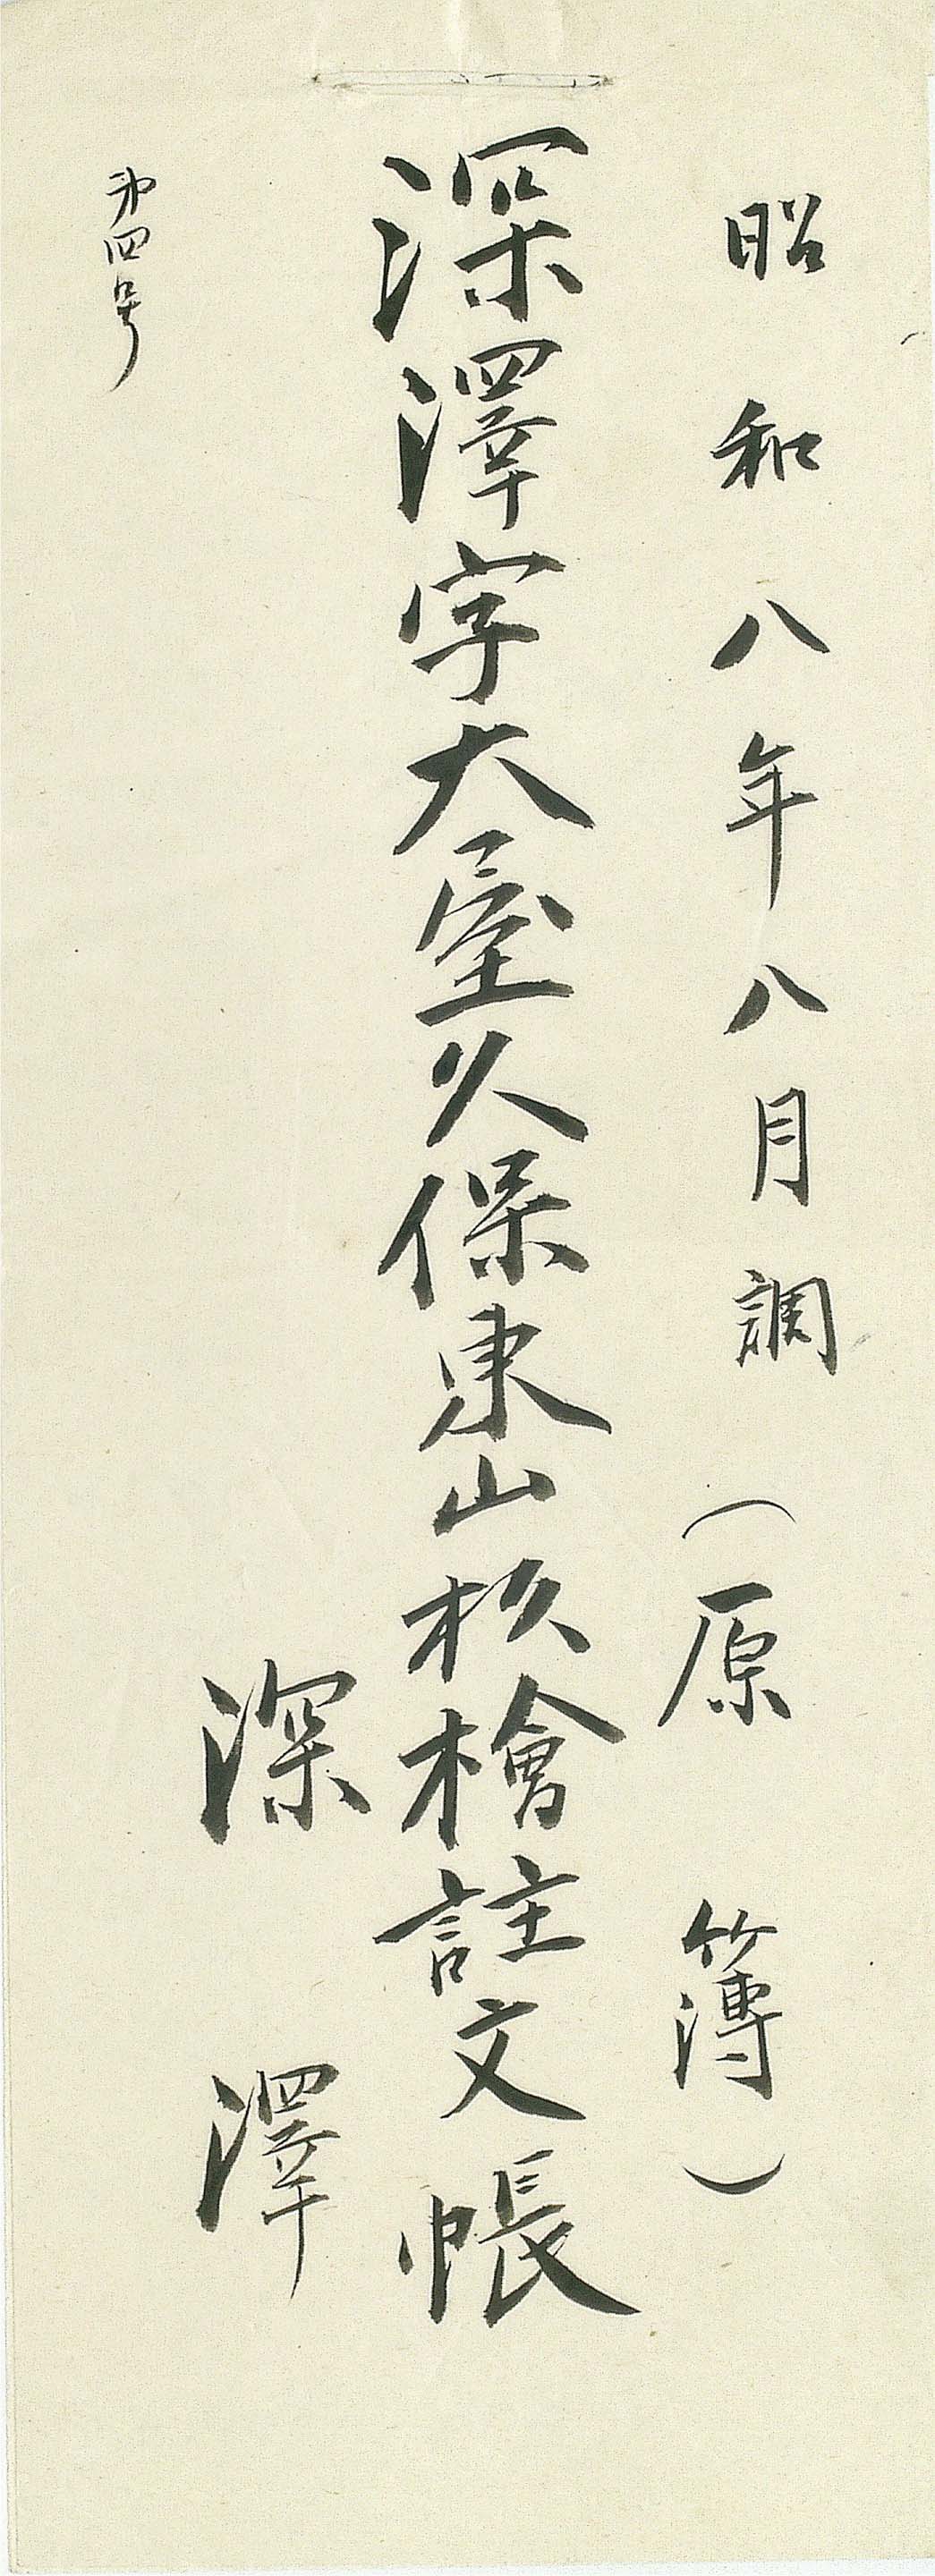 昭和八年八月調（原簿）
深澤字大屋久保東山杉檜註文帳
深澤
第四号